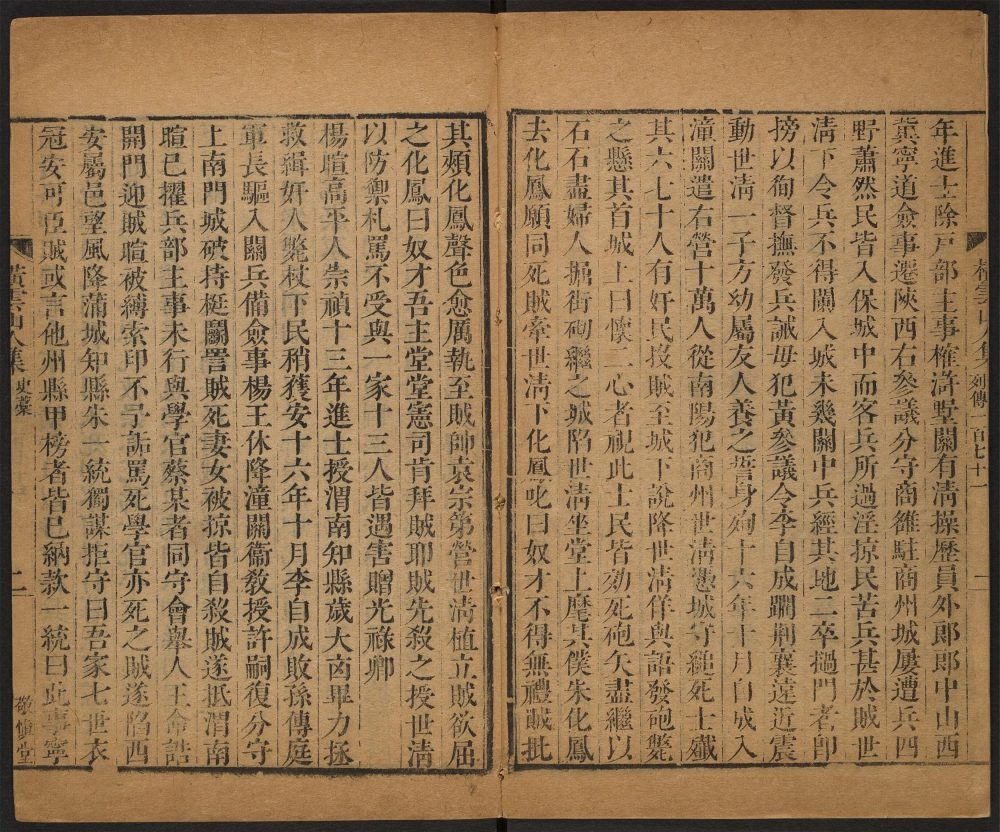 年進士除戸部主事榷滸墅關有淸操歷員外郎郎中山西
冀寧道僉事遷陝西右叅議分守商雒駐商州城屢遭兵四
野蕭然民皆入保城中而客兵所過淫掠民苦兵甚於賊世
淸下令兵不得闌入城未幾關中兵經其地二卒撾門者卽
搒以徇督撫發兵誡毋犯黃叅議令李自成躪荆襄遠近震
動世淸一子方幼屬友人養之誓身殉十六年十月自成入
潼關遣右營十萬人從南陽犯商州世淸憑城守縋死士殲
其六七十人有奸民投賊至城下說降世淸佯與語發砲斃
之懸其首城上曰懷二心者視此士民皆効死砲矢盡繼以
石石盡婦人掘街砌繼之城陷世淸坐堂上麾其僕朱化鳳
去化鳳願同死賊牽世淸下化鳳叱曰奴才不得無禮賊批
列傳
百七十一
一
其頰化鳳聲色愈厲執至賊帥袁宗第營世淸植立賊欲屈
之化鳳曰奴才吾主堂堂憲司肯拜賊耶賊先殺之授世淸
以防禦札罵不受與一家十三人皆遇害贈光祿卿
楊暄高平人崇禎十三年進士授渭南知縣歲大凶畢力拯
救緝奸人斃杖下民稍獲安十六年十月李自成敗孫傳庭
軍長驅入關兵備僉事楊王休降潼關衞敎授許嗣復分守
上南門城破持梃鬭詈賊死妻女被掠皆自殺賊遂抵渭南
暄已擢兵部主事未行與學官蔡某者同守會舉人王命誥
開門迎賊暄被縛索印不予詬罵死學官亦死之賊遂陷西
安屬邑望風降蒲城知縣朱一統獨謀拒守曰吾家七世衣
冠安可臣賊或言他州縣甲榜者皆已納款一統曰此事寧
黃雲山人集
史藁
二
敬愼堂